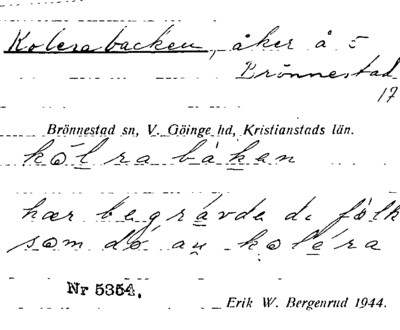 Kolerabacken, åker å 5
Brönnestad
17
Brönnestad sn, V. Göinge hd, Kristianstads län.
kȯlra baken
hær begravde di fȯlk
som do au koléra
Nr 5354.
Erik W. Bergenrud 1944.